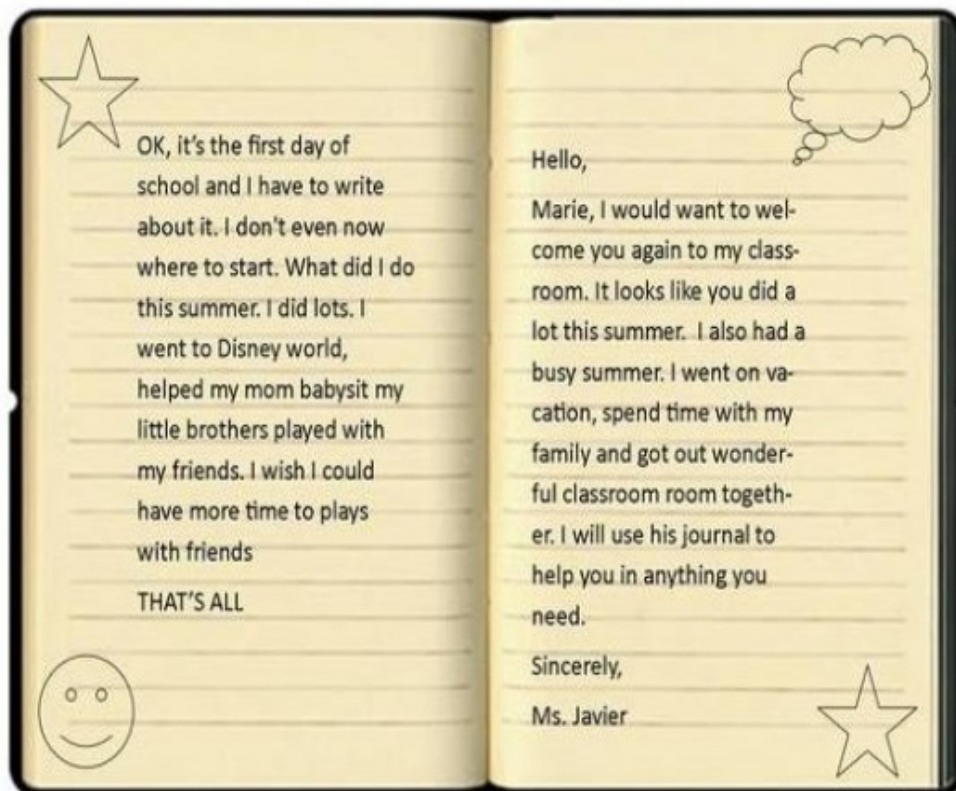 OK, it's the first day of
school and I have to write
about it. I don't even now
where to start. What did I do
this summer. I did lots. I
went to Disney world,
helped my mom babysit my
little brothers played with
my friends. I wish I could
have more time to plays
with friends
THAT'S ALL
Hello,
Marie, I would want to wel-
come you again to my class-
room. It looks like you did a
lot this summer.  I also had a
busy summer. I went on va-
cation, spend time with my
family and got out wonder-
ful classroom room togeth-
er. I will use his journal to
help you in anything you
need.
Sincerely,
Ms. Javier